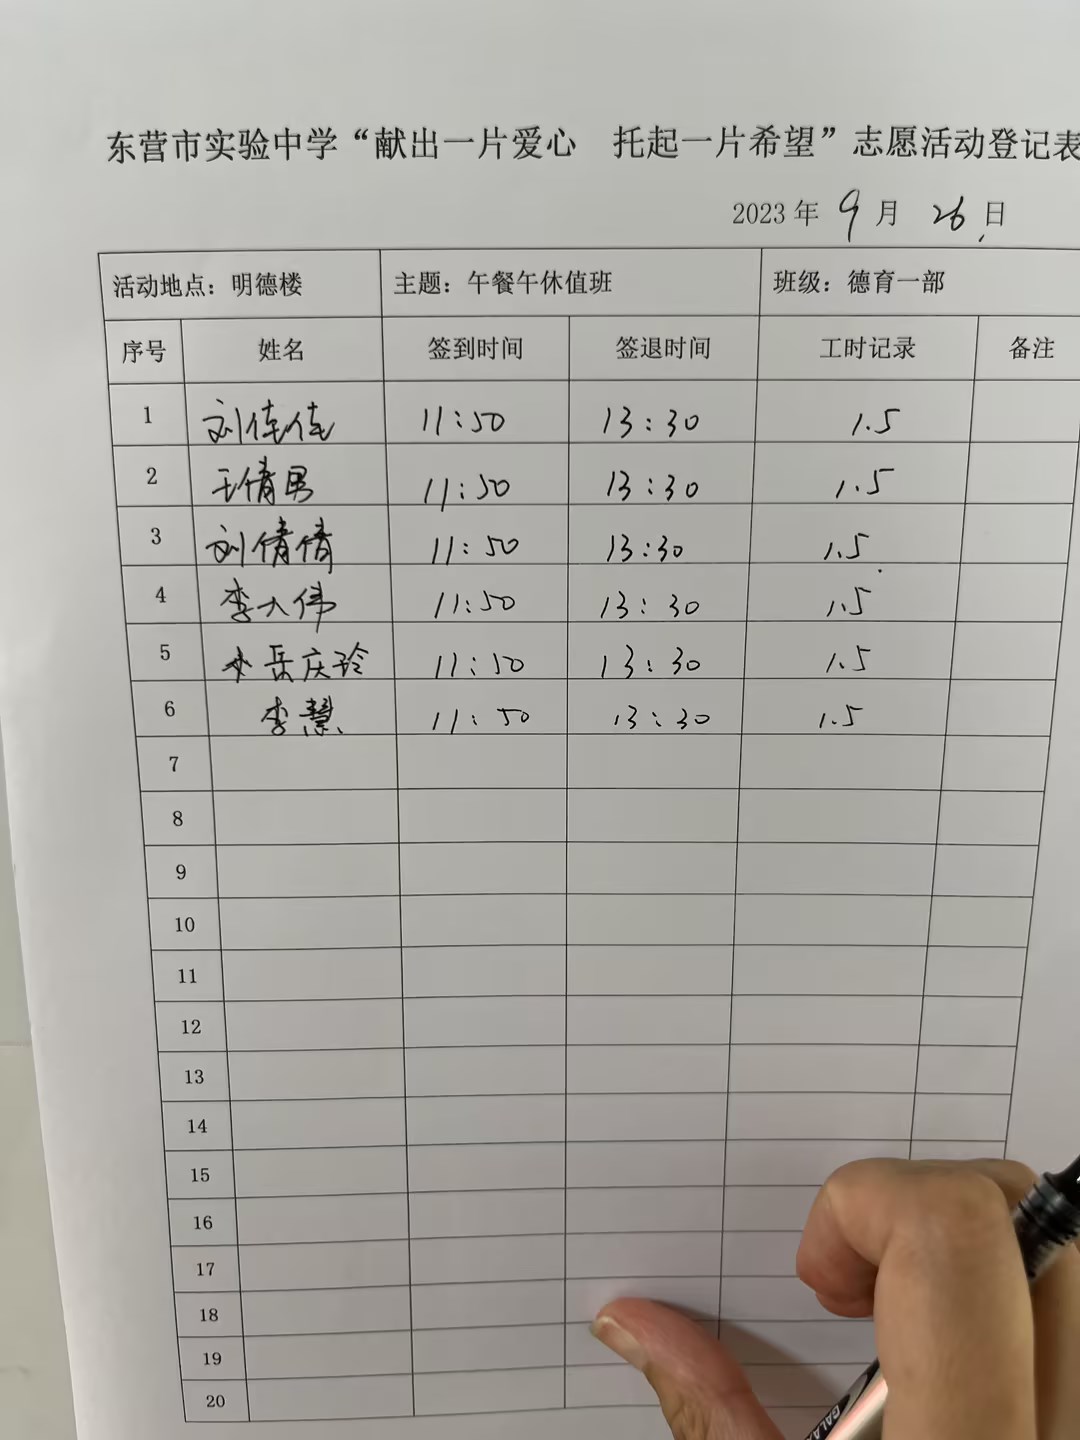 东营市实验中学“献出一片爱心 托起一片希望”志愿活动登记表
2023 年 9 月 26 日
活动地点：明德楼 主题：午餐午休值班 班级：德育一部
序号 姓名 签到时间 签退时间 工时记录 备注
1 刘佳佳 11:50 13:30 1.5
2 王倩男 11:50 13:30 1.5
3 刘倩倩 11:50 13:30 1.5
4 李大伟 11:50 13:30 1.5
5 岳庆玲 11:50 13:30 1.5
6 李慧 11:50 13:30 1.5
7
8
9
10
11
12
13
14
15
16
17
18
19
20